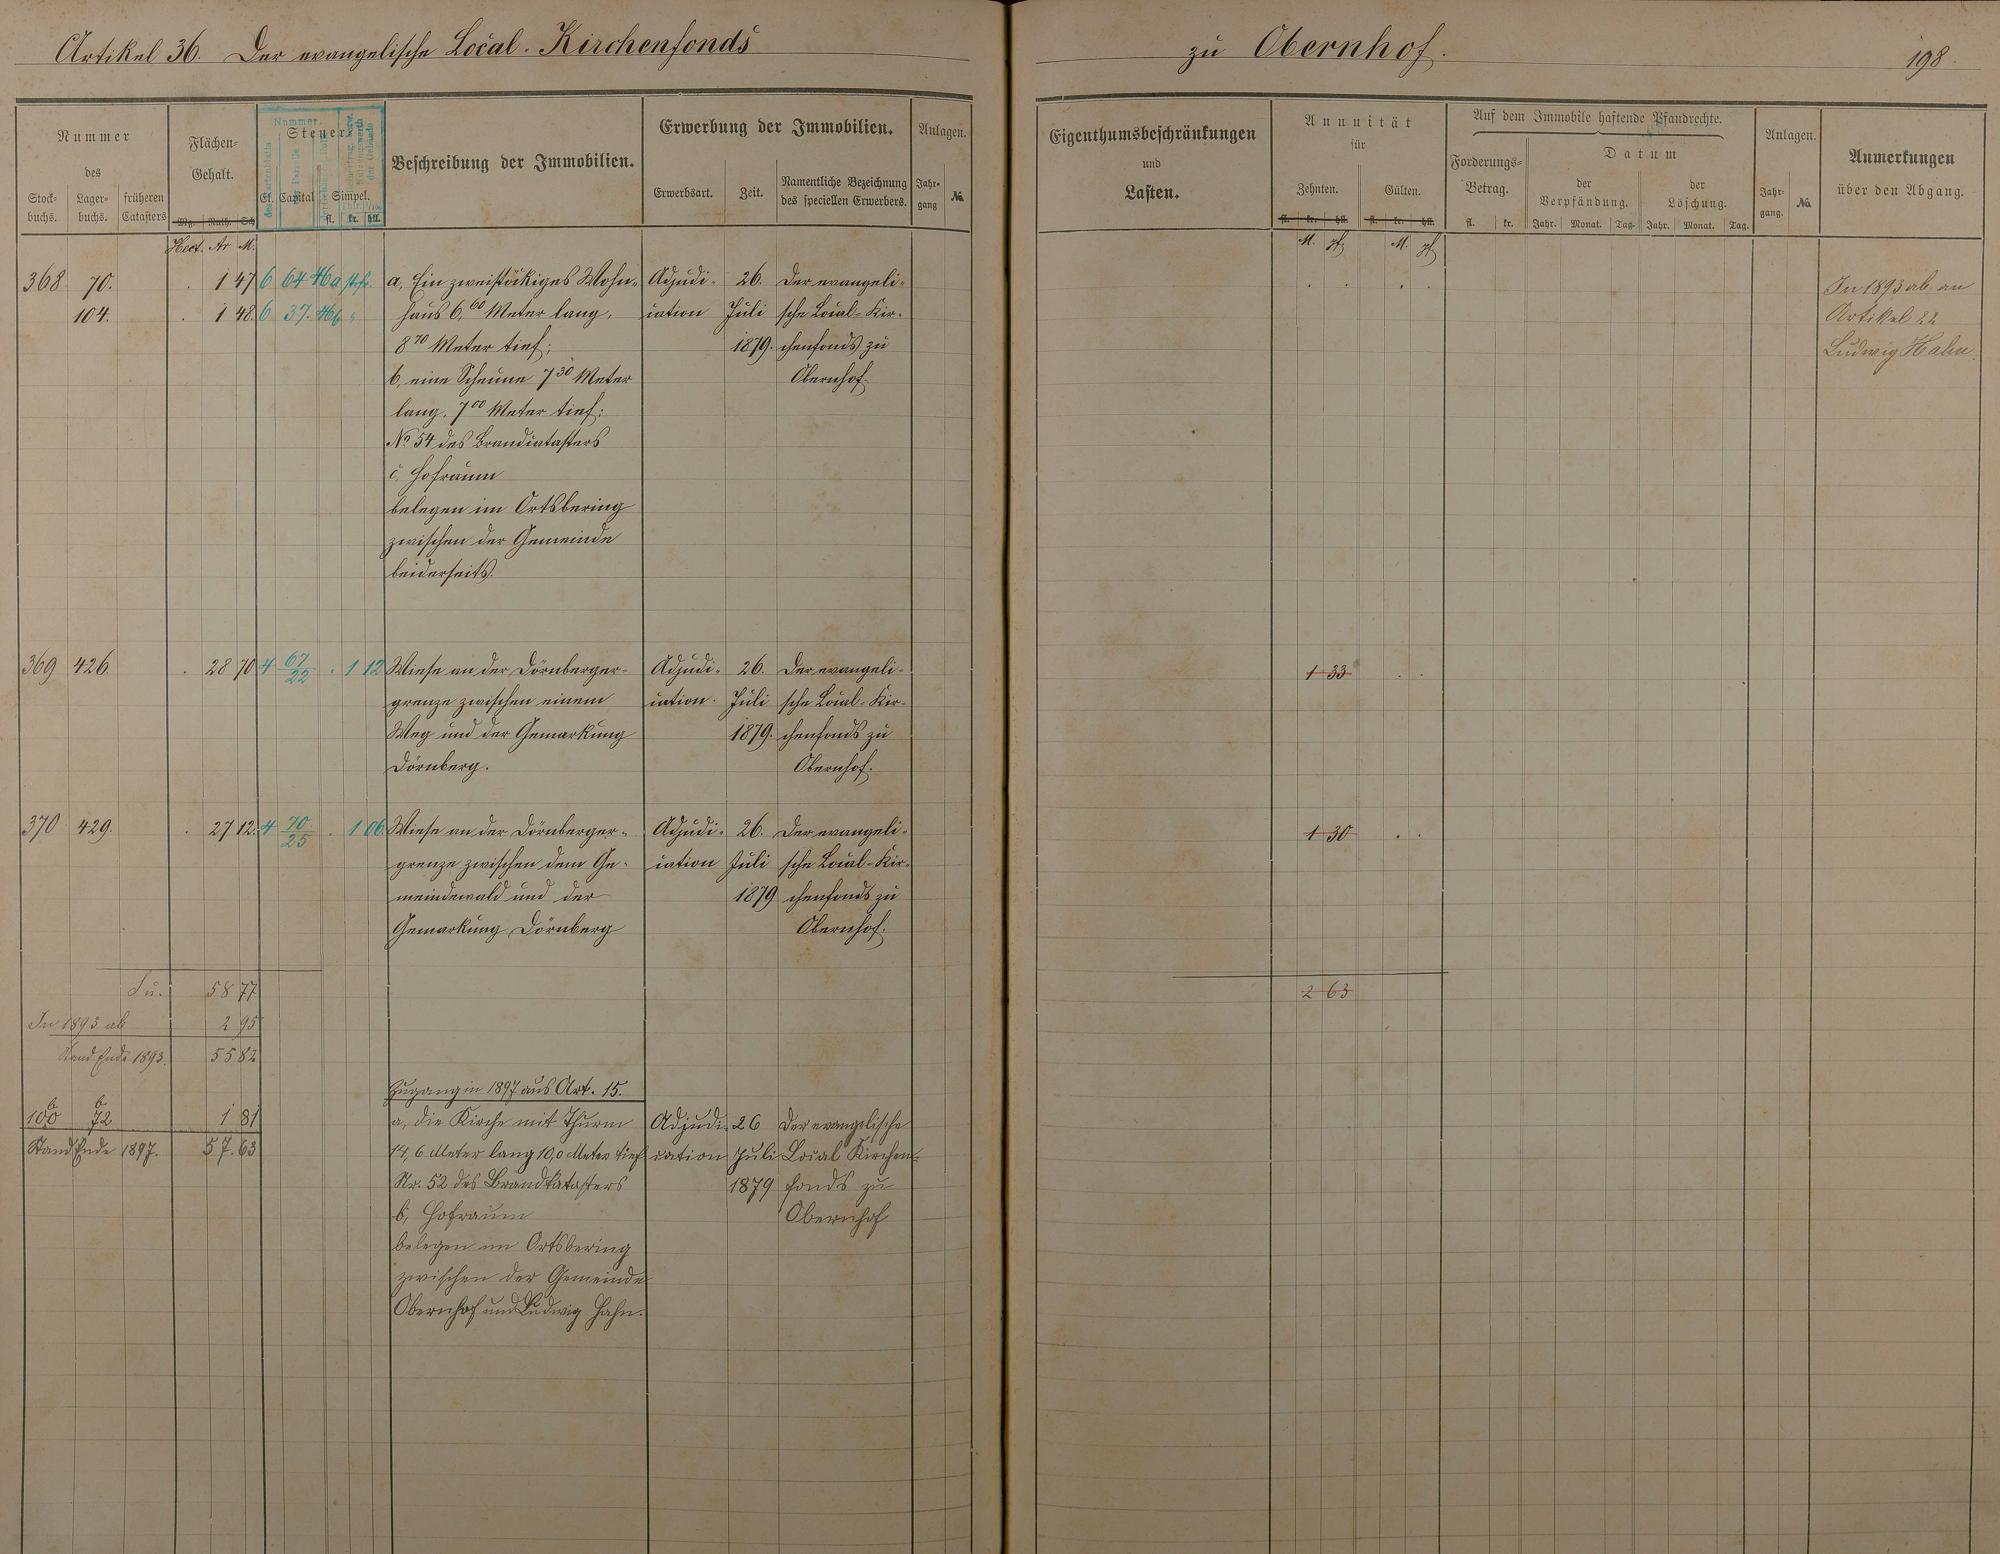 Artikel 36. Der evangelische Local-Kirchenfonds zu Obernhof. 198.
Nummer
des
Stock-buchs. Lager-buchs. früheren Catasters
Flächen-Gehalt.
Mg. Ruth. Sch.
Hect. Ar M.
Nummer
Steuer
Cl. Capital Simpel.
fl. kr. hll.
Beschreibung der Immobilien.
Erwerbung der Immobilien.
Erwerbsart. Zeit. Namentliche Bezeichnung des speciellen Erwerbers.
Anlagen.
Jahr-gang No.
Eigenthumsbeschränkungen
und
Lasten.
Annuität
für
Zehnten. Gülten.
fl. kr. hll. fl. kr. hll.
M. pf M. pf
Auf dem Immobile haftende Pfandrechte.
Forderungs-Betrag.
fl. kr.
Datum
der Verpfändung. der Löschung.
Jahr. Monat. Tag. Jahr. Monat. Tag.
Anlagen.
Jahr-gang. No.
Anmerkungen
über den Abgang.
368 70. . 1 47 6 64 46a stfr. a, Ein zweistöckiges Wohn- Adjudi- 26. Der evangeli-
104. . 1 48. 6 37. 46b " haus 6,60 Meter lang, cation Juli sche Local-Kir-
8 70 Meter tief; 1879. chenfonds zu
b, eine Scheune 7 30 Meter Obernhof.
lang, 7 00 Meter tief;
No 54 des Brandcatasters
c, Hofraum
belegen im Ortsbering
zwischen der Gemeinde
beiderseits.
In 1893 ab an
Artikel 22
Ludwig Hahn.
369 426. . 28 70 4 67/22 . 1 12 Wiese an der Dörnberger- Adjudi- 26. Der evangeli- 1 33 . .
grenze zwischen einem cation. Juli sche Local-Kir-
Weg und der Gemarkung 1879. chenfonds zu
Dörnberg. Obernhof.
370 429. . 27 12. 4 70/25 . 1 06 Wiese an der Dörnberger- Adjudi- 26. Der evangeli- 1 30 . .
grenze zwischen dem Ge- cation Juli sche Local-Kir-
meindewald und der 1879 chenfonds zu
Gemarkung Dörnberg Obernhof.
Su. 58 77 2 63
In 1893 ab 2 95
Stand Ende 1893. 55 82
Zugang in 1897 aus Art. 15.
100b 72b 1 81 a, die Kirche mit Thurm Adjudi- 26 Der evangelische
Stand Ende 1897. 57.63 14,6 Meter lang 10,0 Meter tief cation Juli Local Kirchen-
Nr. 52 des Brandkatasters 1879 fonds zu
b, Hofraum Obernhof
belegen im Ortsbering
zwischen der Gemeinde
Obernhof und Ludwig Hahn.